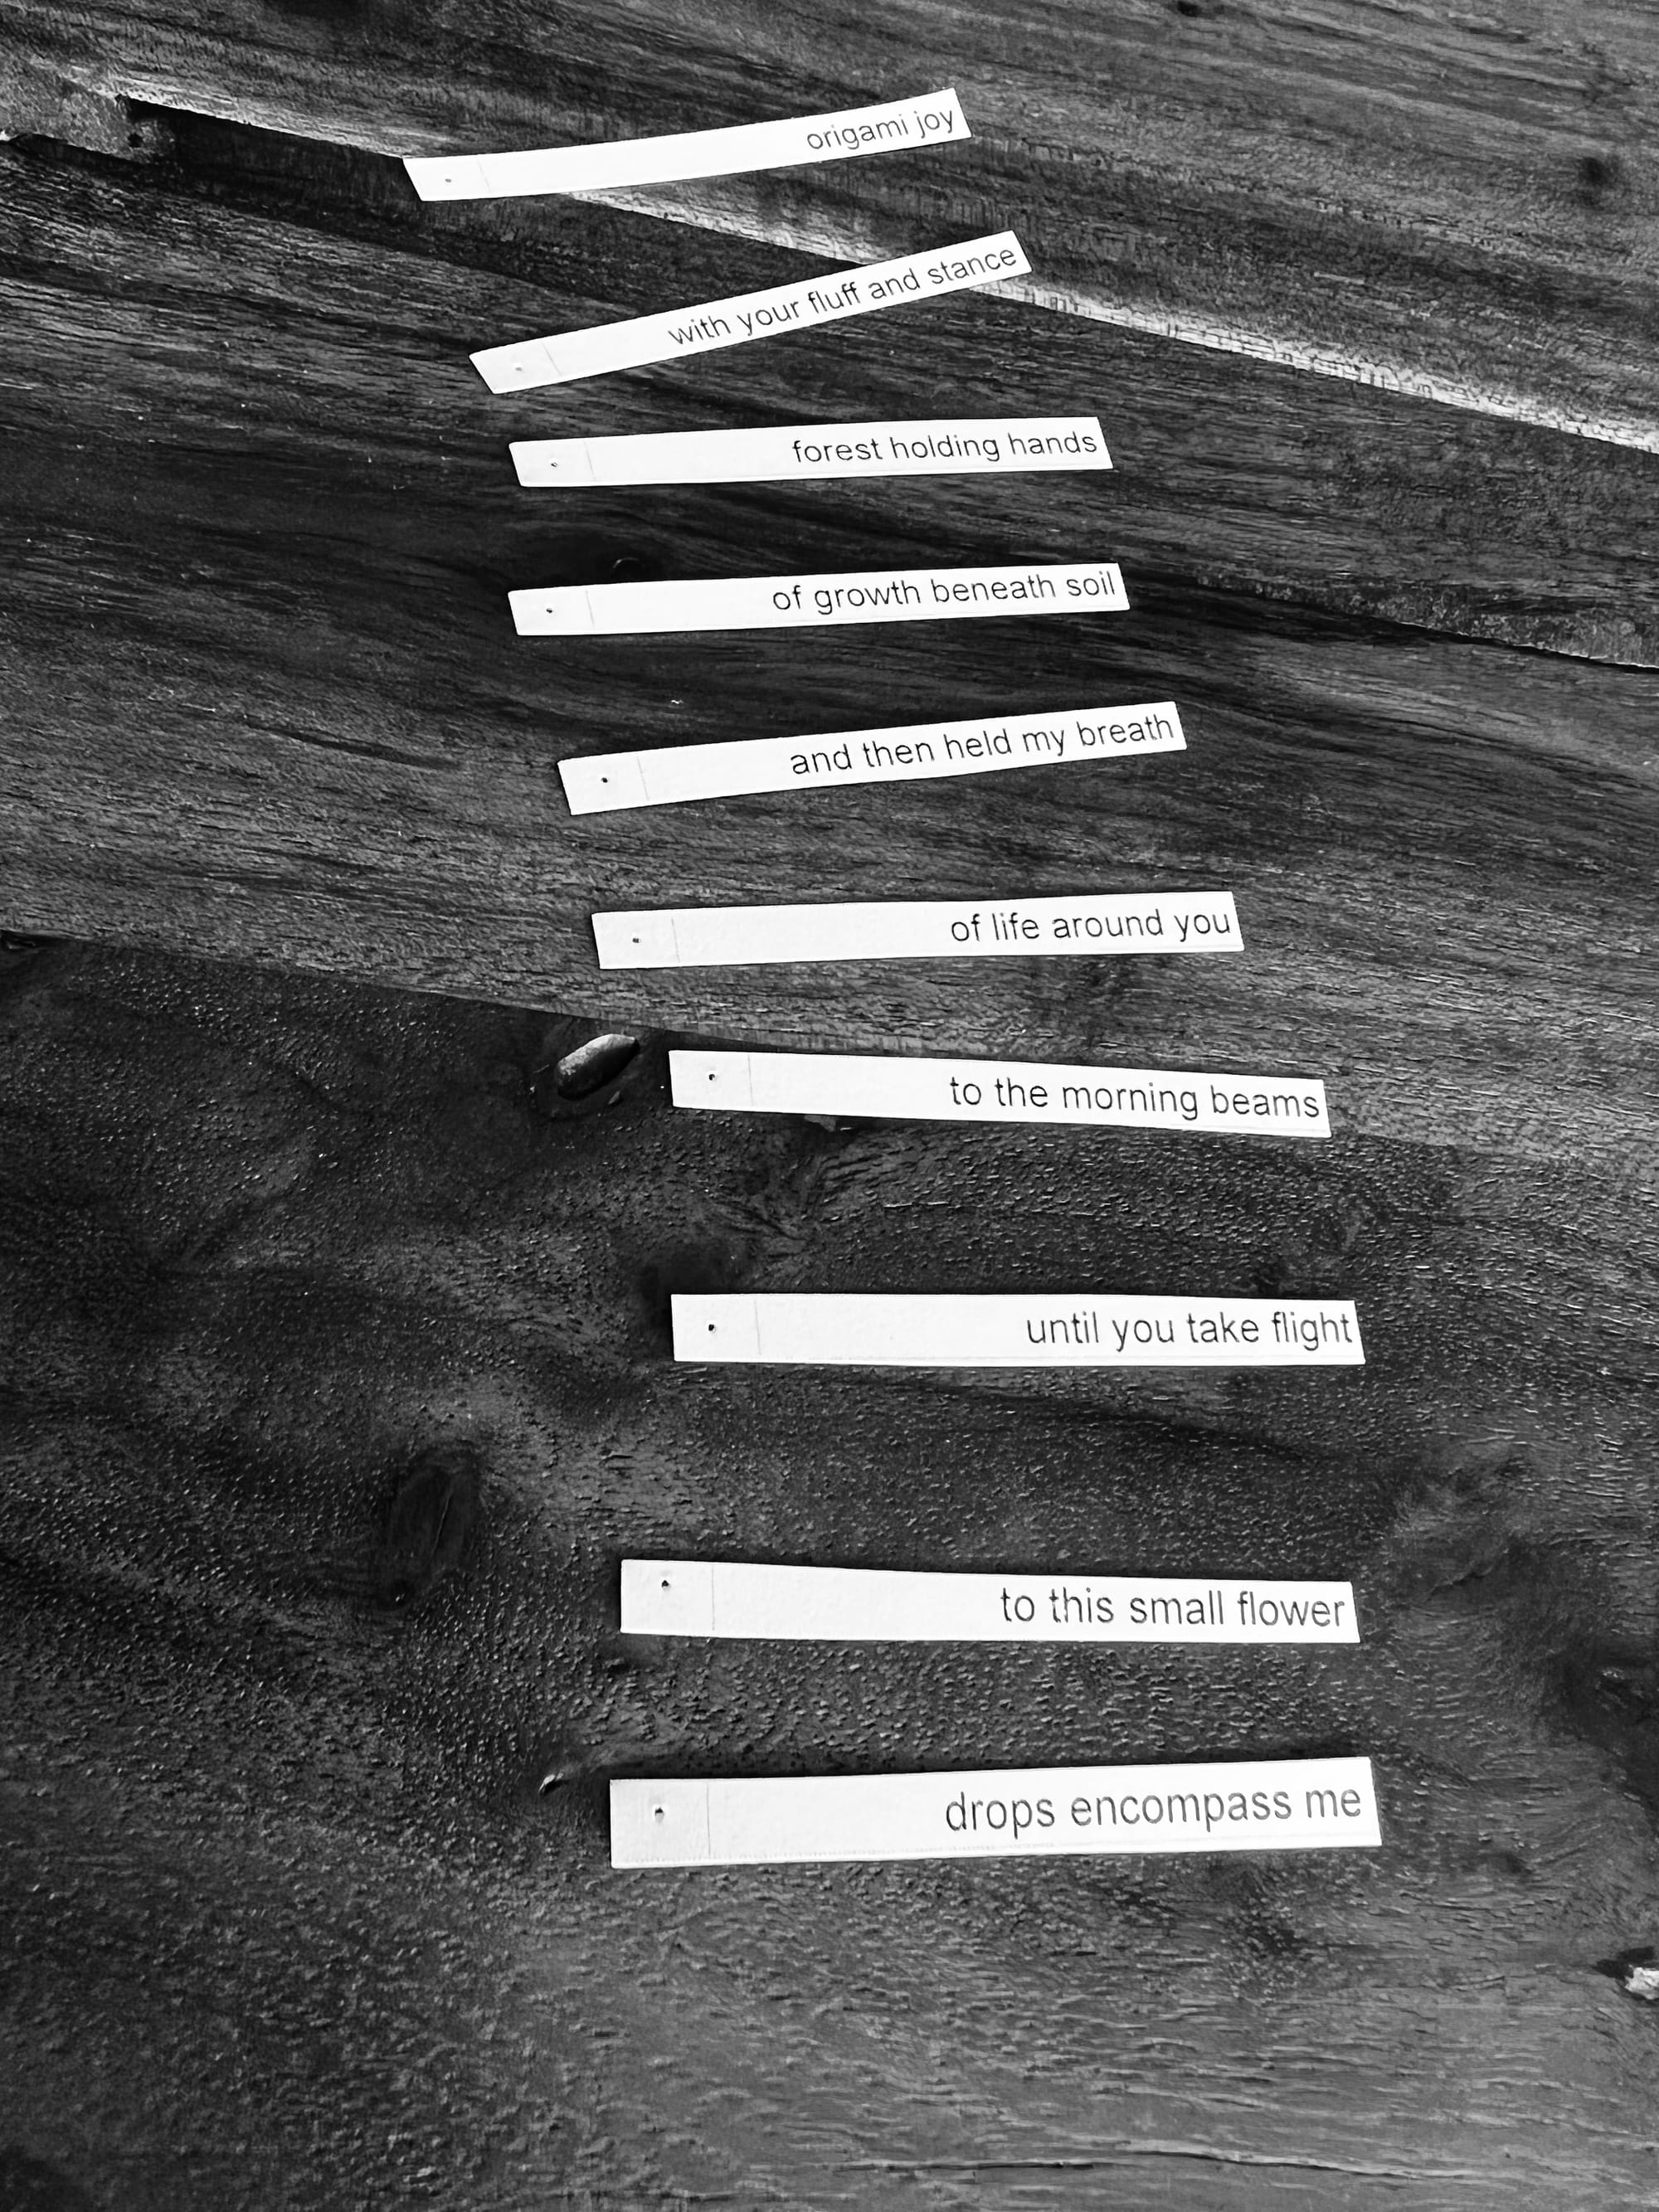 origami joy
with your fluff and stance
forest holding hands
of growth beneath soil
and then held my breath
of life around you
to the morning beams
until you take flight
to this small flower
drops encompass me